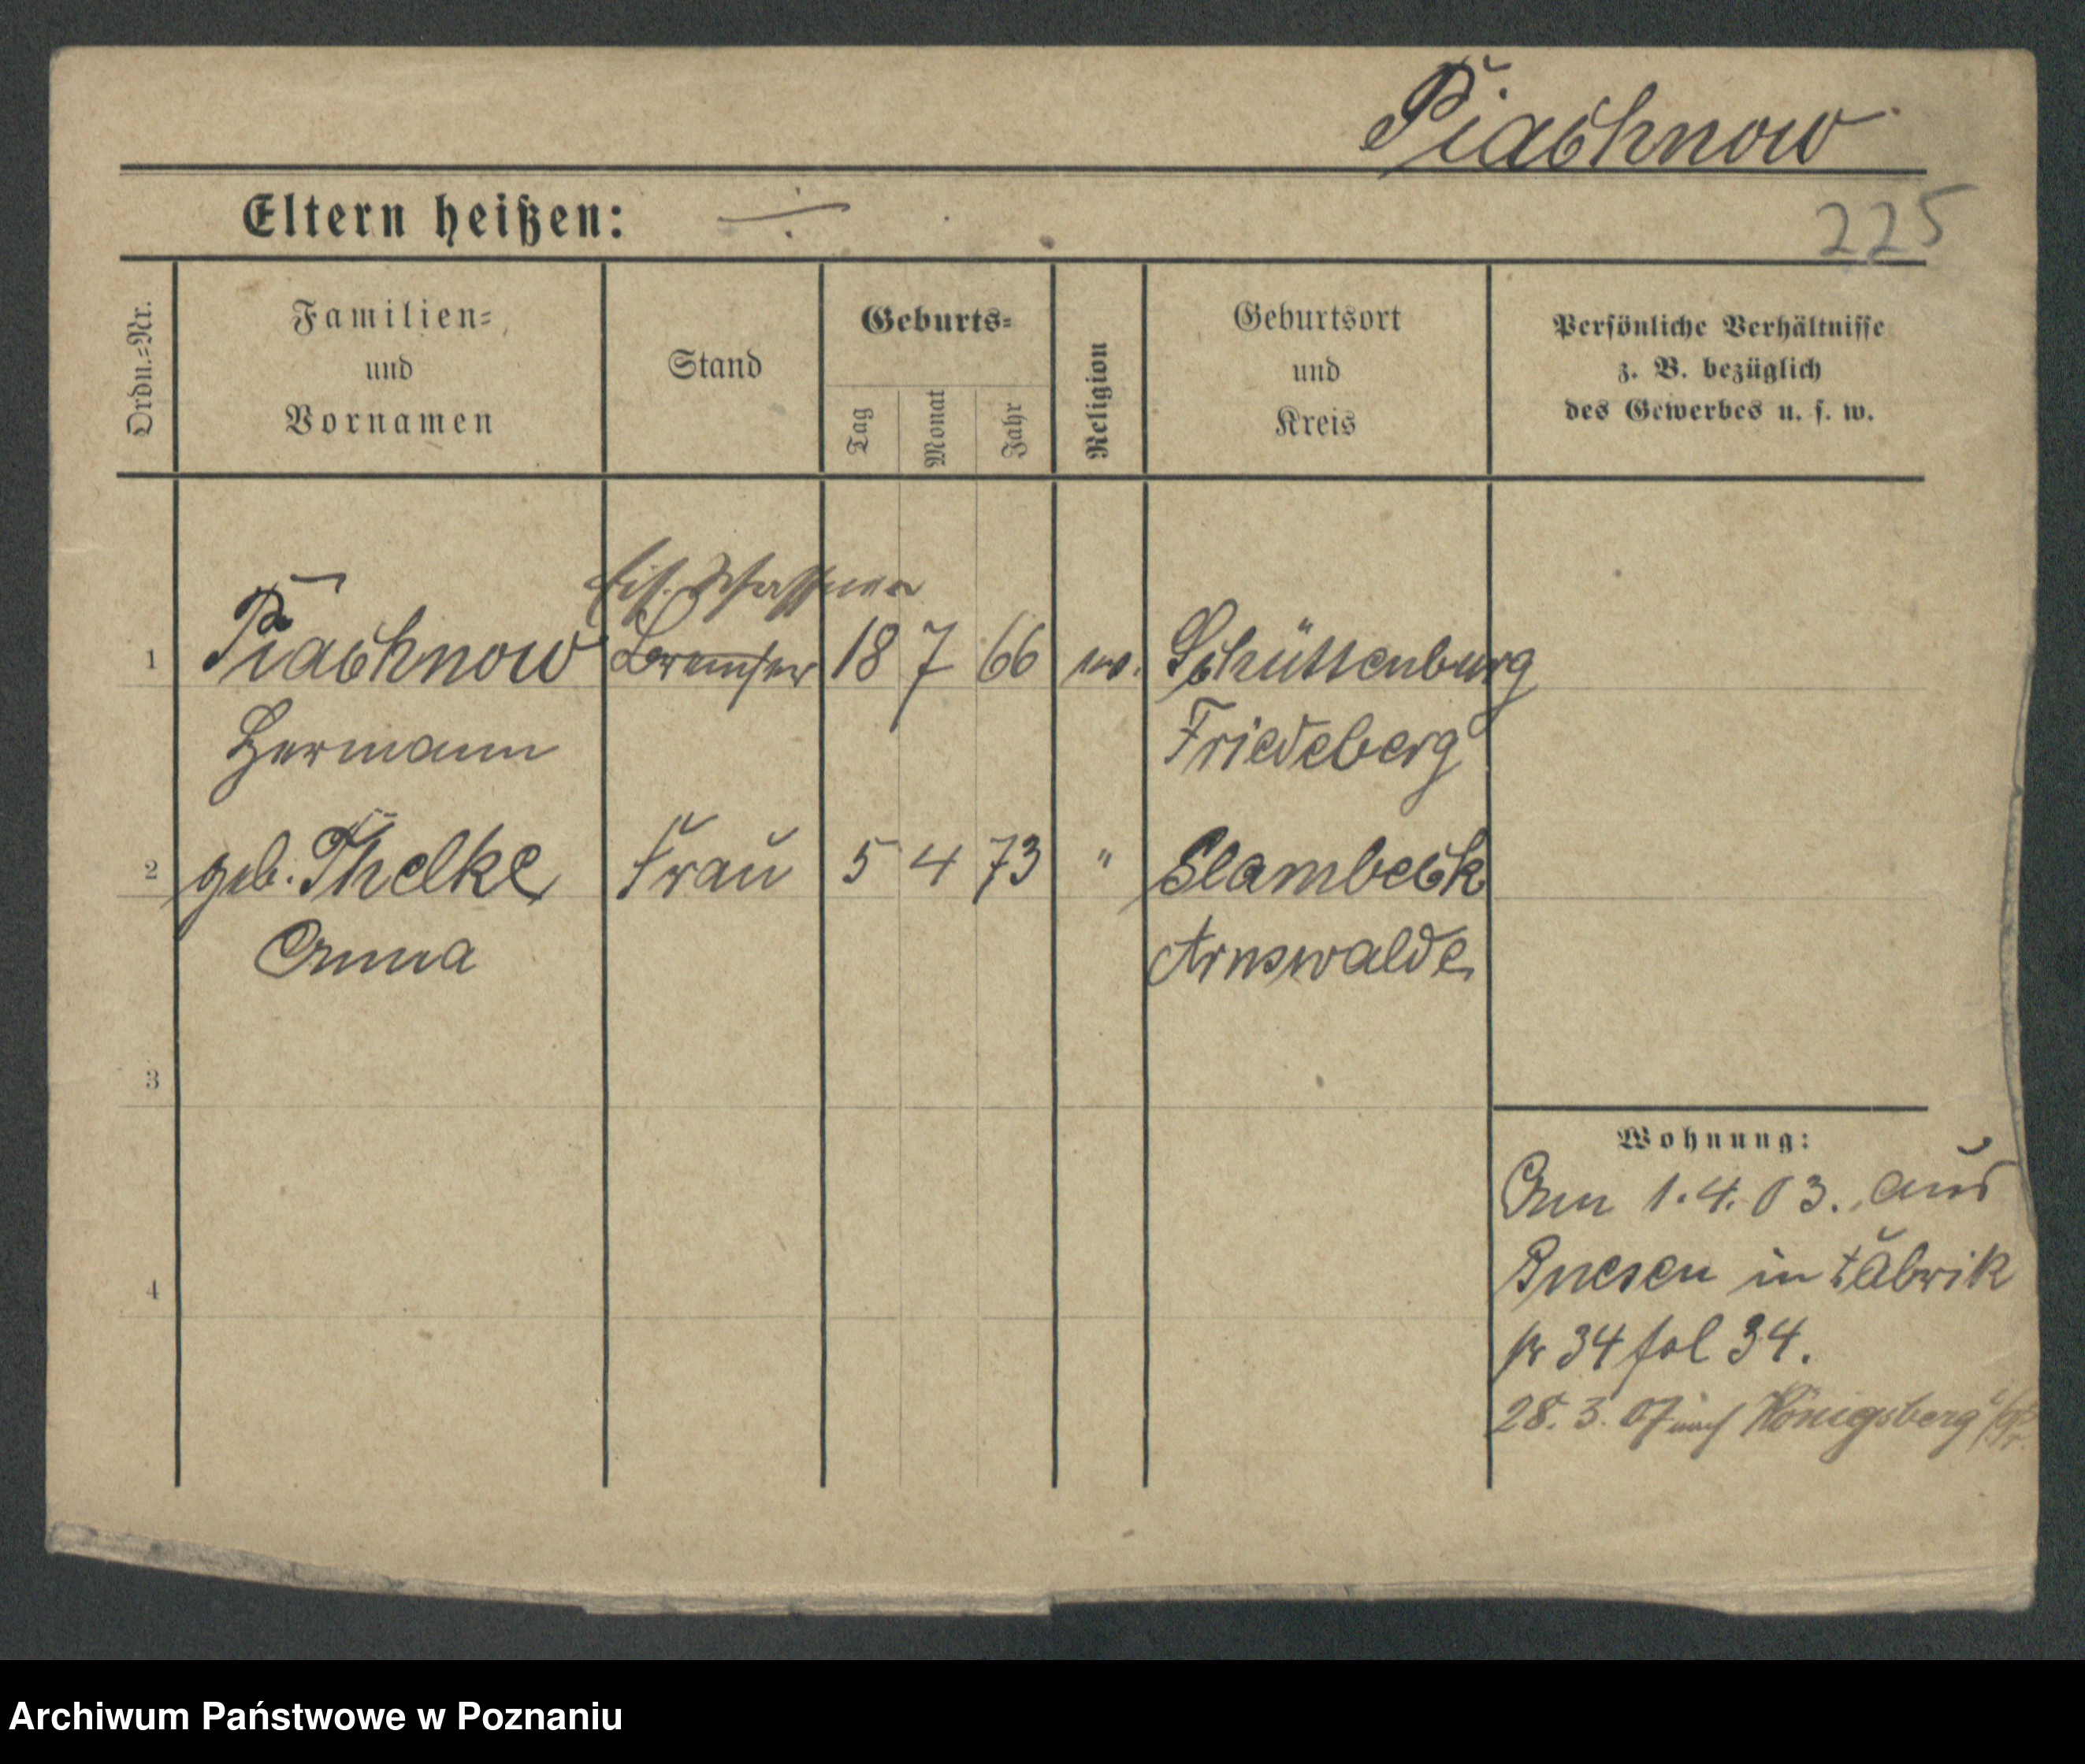 Piachnow
Eltern heißen: ÷
225
Ordn.=Nr.
Familien=
und
Vornamen
Stand
Geburts=
Tag
Monat
Jahr
Religion
Geburtsort
und
Kreis
Persönliche Verhältnisse
z. B. bezüglich
des Gewerbes u. s. w.
Eis. Schaffner
1 Piachnow Bremser 18 7 66 Schüttenburg
Hermann Friedeberg
2 geb. Thelke Frau 5 4 73 " Slambeck
Anna Arnswalde
3
Wohnung:
Am 1.4.03. aus
Gnesen in Fabrik
4
34 fol 34.
28. 3. 07 nach Königsberg i/Pr.
Archiwum Państwowe w Poznaniu